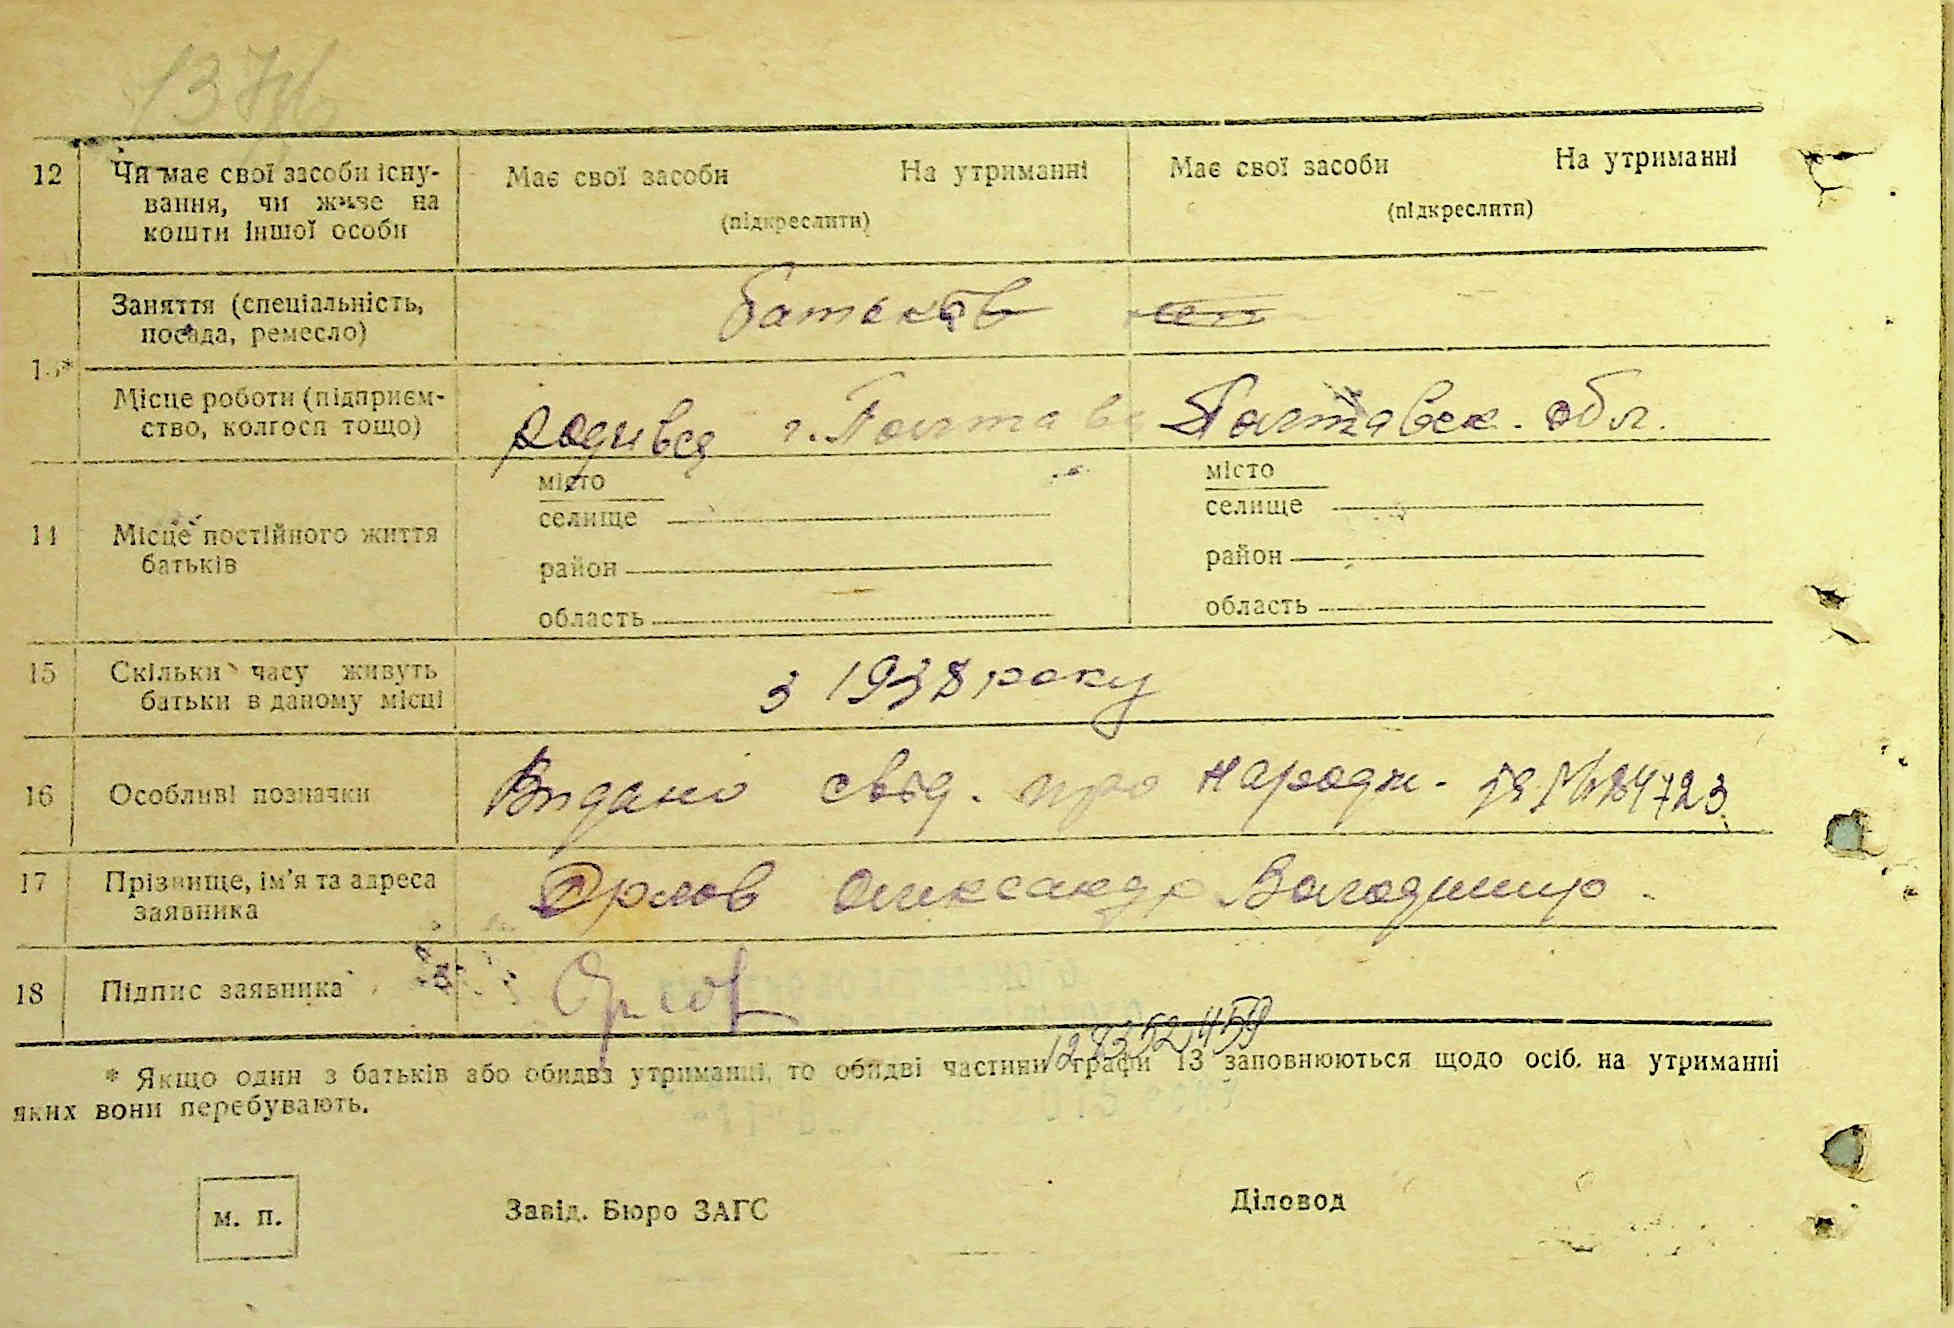 12 Чи має свої засоби існу-
вання, чи живе на
кошти іншої особи
Має свої засоби На утриманні
(підкреслити)
Має свої засоби На утриманні
(підкреслити)
13*
Заняття (спеціальність,
посада, ремесло)
Місце роботи (підприєм-
ство, колгосп тощо)
родився г. Полтава Полтавск. обл.
14 Місце постійного життя
батьків
місто
селище
район
область
місто
селище
район
область
15 Скільки часу живуть
батьки в даному місці
з 1938 року
16 Особливі позначки
Видано свід. про народж.
17 Прізвище, ім'я та адреса
заявника
Орлов Олександр Володимир.
18 Підпис заявника
Орлов
* Якщо один з батьків або обидва утриманні, то обидві частини графи 13 заповнюються щодо осіб, на утриманні
яких вони перебувають.
М. П.
Завід. Бюро ЗАГС
Діловод